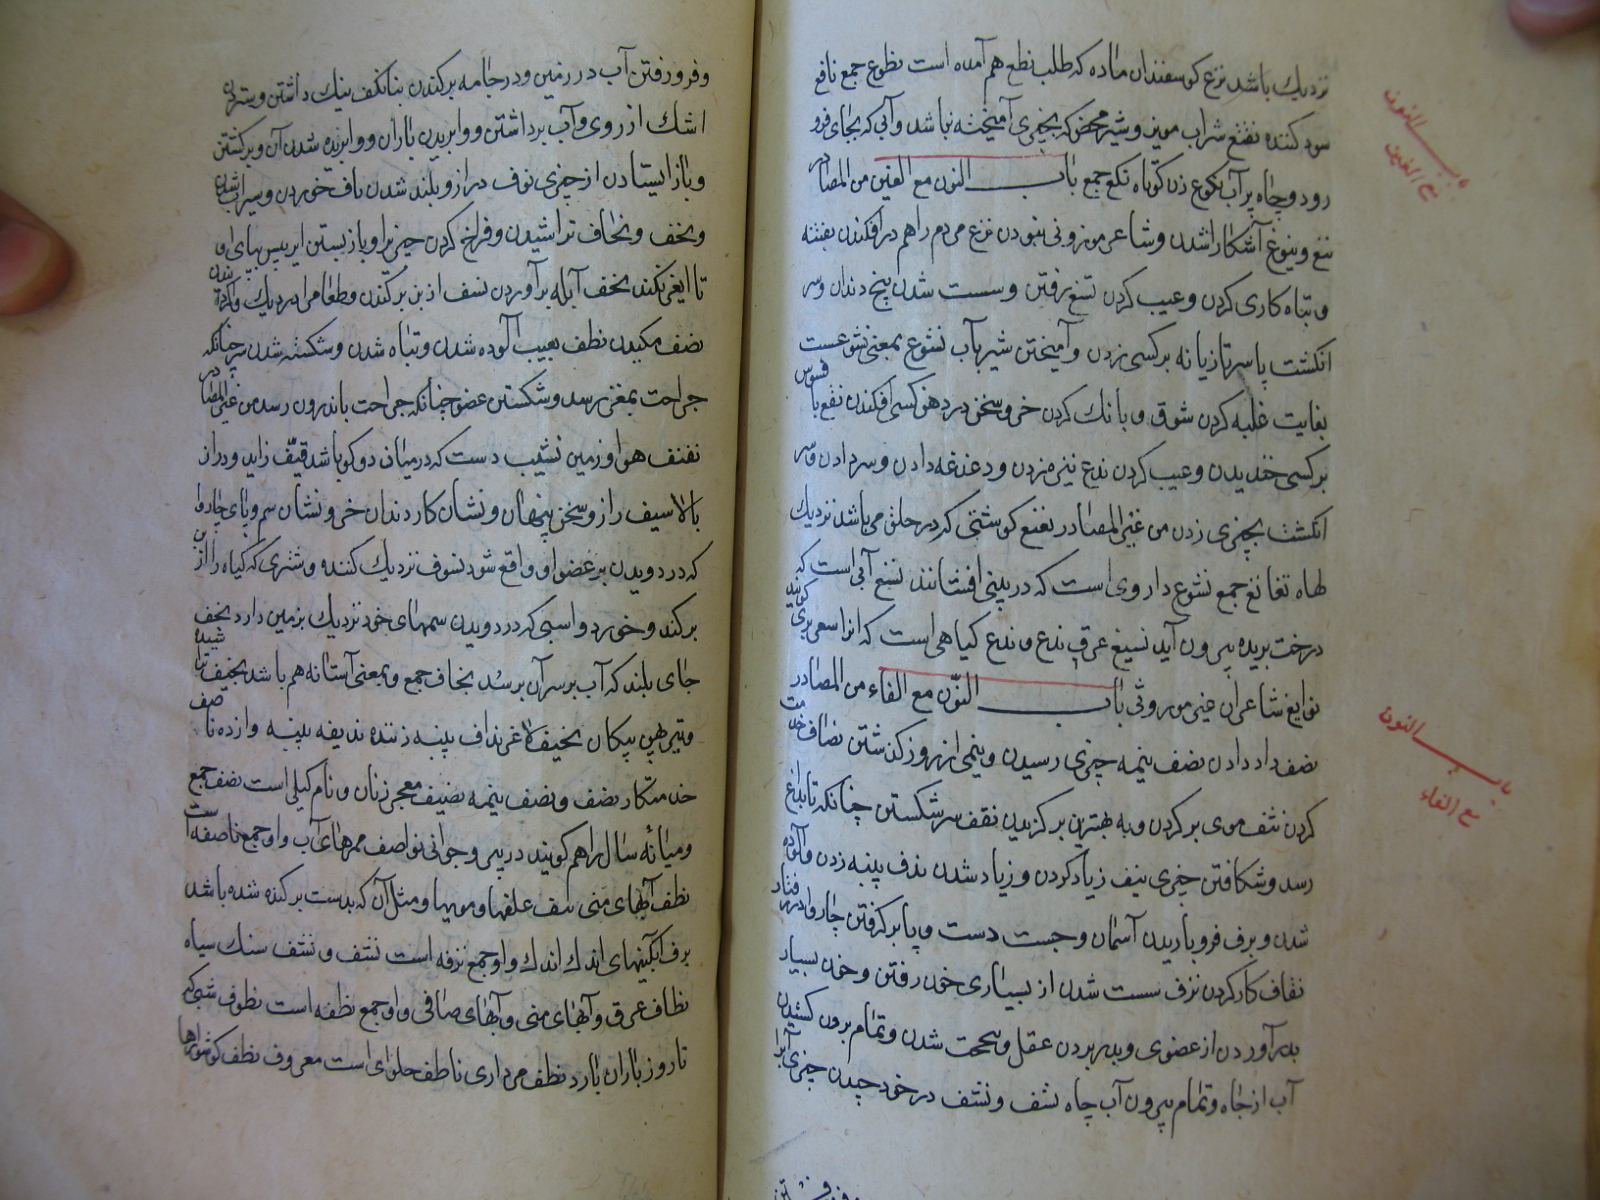 نزدیك باشد نزع كوسفندان ماده كه طلب نطع هم آمده است نطوع جمع نافع
سود كننده نقنع شراب مویز و شیر محض كه بچیزی آمیخته نباشد و آبی كه بجای فرو
رود و چاه پر آب نكوع زن كوتاه نكع جمع باب النون مع الغین من المصادر
باب النون
مع الغین
نبغ و نبوغ آشكارا شدن و شاعر موزونی نبودن نزغ مردم را هم در افكندن بفتنه
و تباه كاری كردن و عیب كردن نسغ رفتن و سست شدن بیخ دندان و سر
انكشت یا سر تازیانه بر كسی زدن و آمیختن شیر بآب نشوغ بمعنی نشوعست
بغایت غلبه كردن شوق و بانك كردن خر و سخن در دهن كسی افكندن
بر كسی خندیدن و عیب كردن ندغ نیزه زدن و دغدغه دادن و سر دادن و سر
انكشت بچیزی زدن من غیر المصادر نغنغ كوشتی كه در حلق می باشد نزدیك
لهاه نغانغ جمع نشوغ داروی است كه در بینی افشانند نسغ آبی است كه
درخت بریده بیرون آید نسیغ عرق ندغ و ندغ كیاهی است كه انرا سعتر بری كویند
نوابغ شاعران غیر موروثی باب النون مع الفاء من المصادر
باب النون
مع الفاء
نصف داد دادن نصف بنیمه چیزی رسیدن و نیمی از روز كذشتن نصاف خدمت
كردن نتف موی بر كردن و به بهترین بر كزیدن نقف سر شكستن چنانكه تا بدماغ
رسد و شكافتن چیزی نیف زیاد كردن و زیاد شدن ندف پنبه زدن و آلوده
شدن و برف فرو باریدن آسمان و جست دست و پا بر كرفتن چاروا در رفتار
نقاف كار كردن نزف سست شدن از بسیاری خون رفتن و خون بسیار
بدر آوردن از عضوی و بدر بردن عقل و بی حجت شدن و تمام برون كشیدن
آب از چاه و تمام بیرون آب چاه نشف و نشف در خود چیدن چیزی آبرا
و فرو رفتن آب در زمین و در جامه بر كندن بنا نكف نیك داشتن و ستردن
اشك از روی و آب برداشتن و وابریدن باران و وابریده شدن آن و بركشتن
و باز ایستادن از چیزی نوف دراز و بلند شدن ناف خوردن و سیراب شدن
و نحف و نحاف تراشیدن و فراخ كردن چیزیرا و باز بستن ابر پس پهای او
تا ایغر نكند نخف آبله برآوردن نسف از بن بركندن و طعام
نضف مكیدن نطف بعیب آلوده شدن و تباه شدن و شكسته شدن سر چنانكه
جراحت بمغز رسد و شكستن عضو چنانكه جراحت باندرون رسد من غیر المصادر
نفنف هوا و زمین نشیب دست كه در میان دو كوه باشد نیف زاید و دراز
بالا نسیف راز و سخن پنهان و نشان كار دندان خر و نشان سم و پای چاروا
كه در دویدن بر عضو او واقع شود نسوف نزدیك كننده و شتری كه كیاه را از بن
بركند و خورد و اسبی كه در دویدن سمهای خود نزدیك بزمین دارد نجف
جای بلند كه آب بر سر آن برسد نجاف جمع و بمعنی آستانه هم باشد نجیف تراشیده
و تیر پهن پیكان نحیف لاغر نداف پنبه زننده ندیفه پنبه وازده ناصف
خدمتكار نصف و نصف نیمه نصیف معجر زنان و نام كیلی است نصف جمع
و میانه سال را هم كویند در پیری و جوانی نواصف ممرهای آب و او جمع ناصفه است
نطف آبهای منی نتف علفها و مویها و مثل آن كه بدست بركنده شده باشد
نزف آبكینهای اندك اندك و او جمع نزفه است نشف و نشف سنك سیاه
نطاف عرق و آبهای منی و آبهای صافی و او جمع نطفه است نطوف شبی كه
تا روز باران بارد نطف مرداری ناطف حلوای است معروف نطف كوشوارها